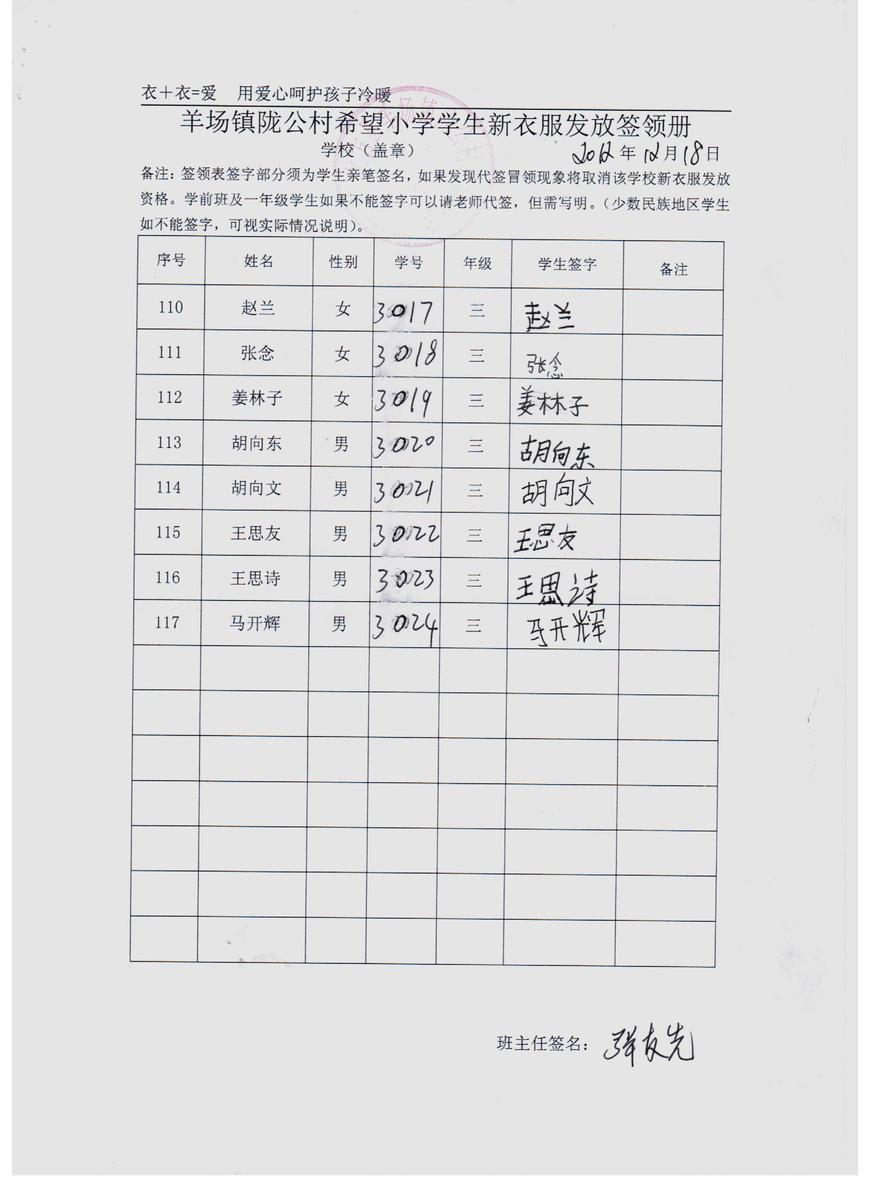 衣+衣=爱 用爱心呵护孩子冷暖
羊场镇陇公村希望小学学生新衣服发放签领册
学校（盖章） 2012年12月18日
备注：签领表签字部分须为学生亲笔签名，如果发现代签冒领现象将取消该学校新衣服发放
资格。学前班及一年级学生如果不能签字可以请老师代签，但需写明。（少数民族地区学生
如不能签字，可视实际情况说明）。
序号 姓名 性别 学号 年级 学生签字 备注
110 赵兰 女 3017 三 赵兰
111 张念 女 3018 三 张念
112 姜林子 女 3019 三 姜林子
113 胡向东 男 3020 三 胡向东
114 胡向文 男 3021 三 胡向文
115 王思友 男 3022 三 王思友
116 王思诗 男 3023 三 王思诗
117 马开辉 男 3024 三 马开辉
班主任签名：友先